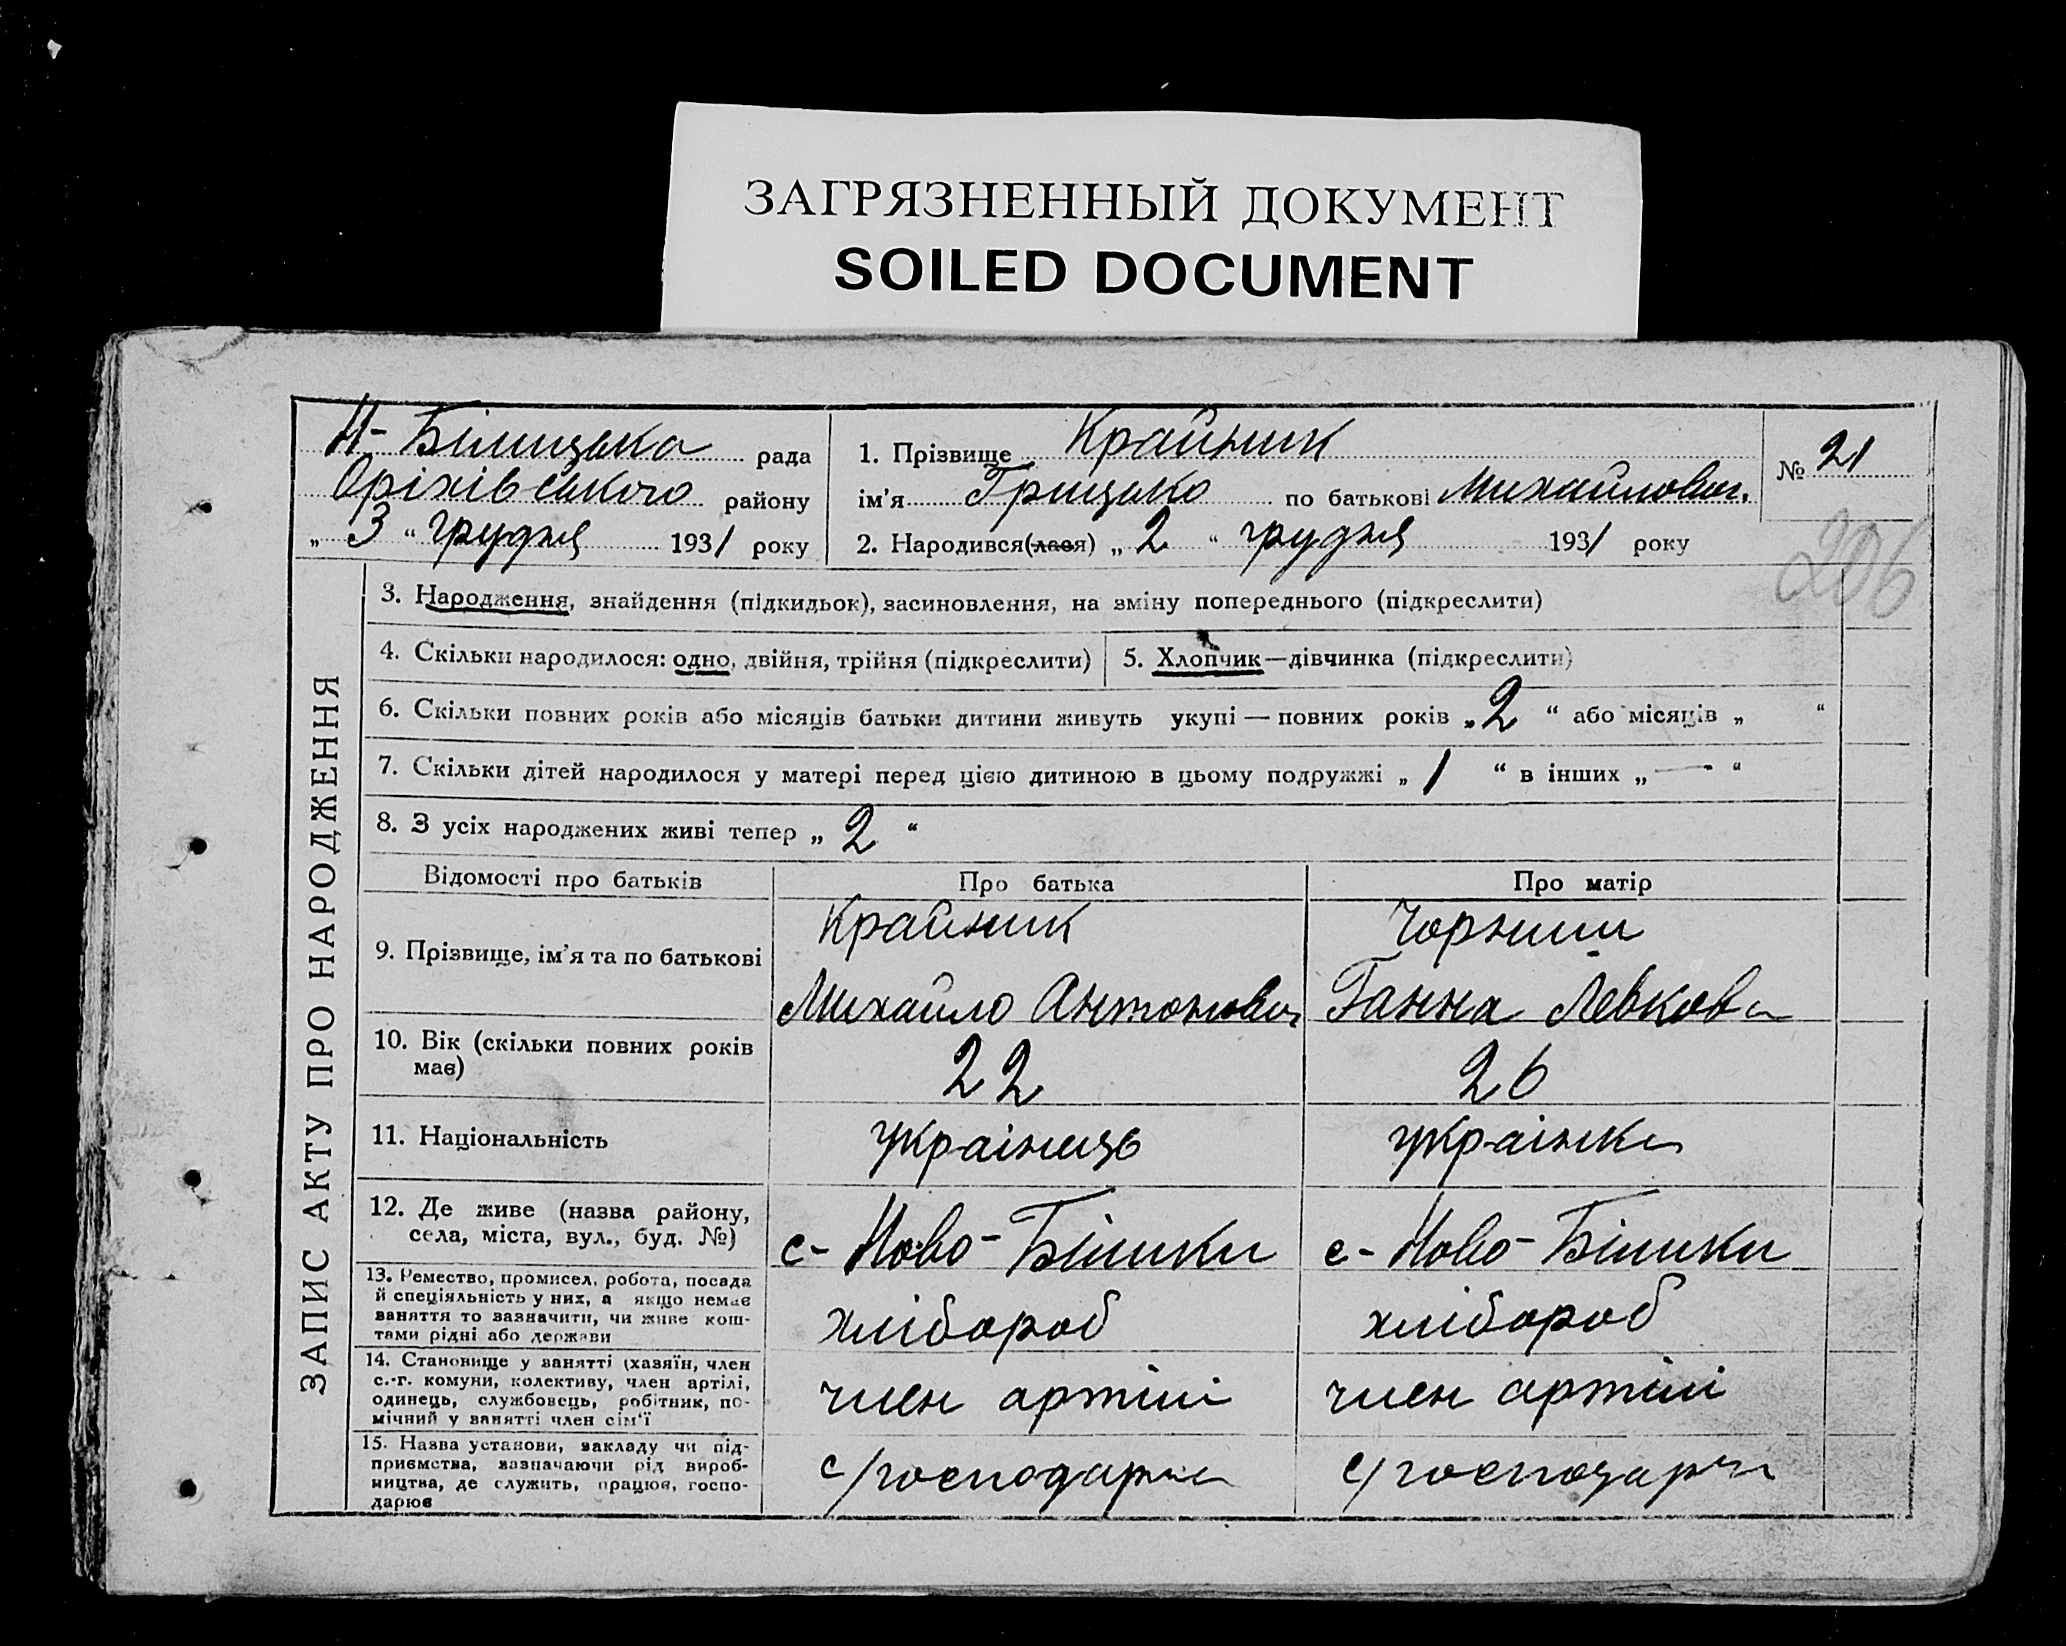 ЗАГРЯЗНЕННЫЙ ДОКУМЕНТ
SOILED DOCUMENT
Н-Білицька рада
Оріхівського району
„ 3 “ грудня 1931 року
1. Прізвище Крайник
ім'я Грицько по батькові Михайлович
2. Народився(лася) „ 2 “ грудня 1931 року
№ 21
206
ЗАПИС АКТУ ПРО НАРОДЖЕННЯ
3. Народження, знайдення (підкидьок), засиновлення, на зміну попереднього (підкреслити)
4. Скільки народилося: одно, двійня, трійня (підкреслити)
5. Хлопчик—дівчинка (підкреслити)
6. Скільки повних років або місяців батьки дитини живуть укупі — повних років „ 2 “ або місяців „ “
7. Скільки дітей народилося у матері перед цією дитиною в цьому подружжі „ 1 “ в інших „ — “
8. З усіх народжених живі тепер „ 2 “
Відомості про батьків Про батька Про матір
9. Прізвище, ім'я та по батькові
Крайник
Михайло Антонович
Чорниш
Ганна Левкова
10. Вік (скільки повних років
має)
22
26
11. Національність
українець
українка
12. Де живе (назва району,
села, міста, вул., буд. №)
с- Ново-Білики
с- Ново-Білики
13. Ремество, промисел, робота, посада
й спеціяльність у них, а якщо немає
заняття то зазначити, чи живе кош-
тами рідні або держави
хлібороб
хлібороб
14. Становище у занятті (хазяїн, член
с.-г. комуни, колективу, член артілі,
одинець, службовець, робітник, по-
мічний у занятті член сім'ї
член артілі
член артілі
15. Назва установи, закладу чи під-
приємства, зазначаючи рід вироб-
ництва, де служить, працює, госпо-
дарює
с/господарча
с/господарча